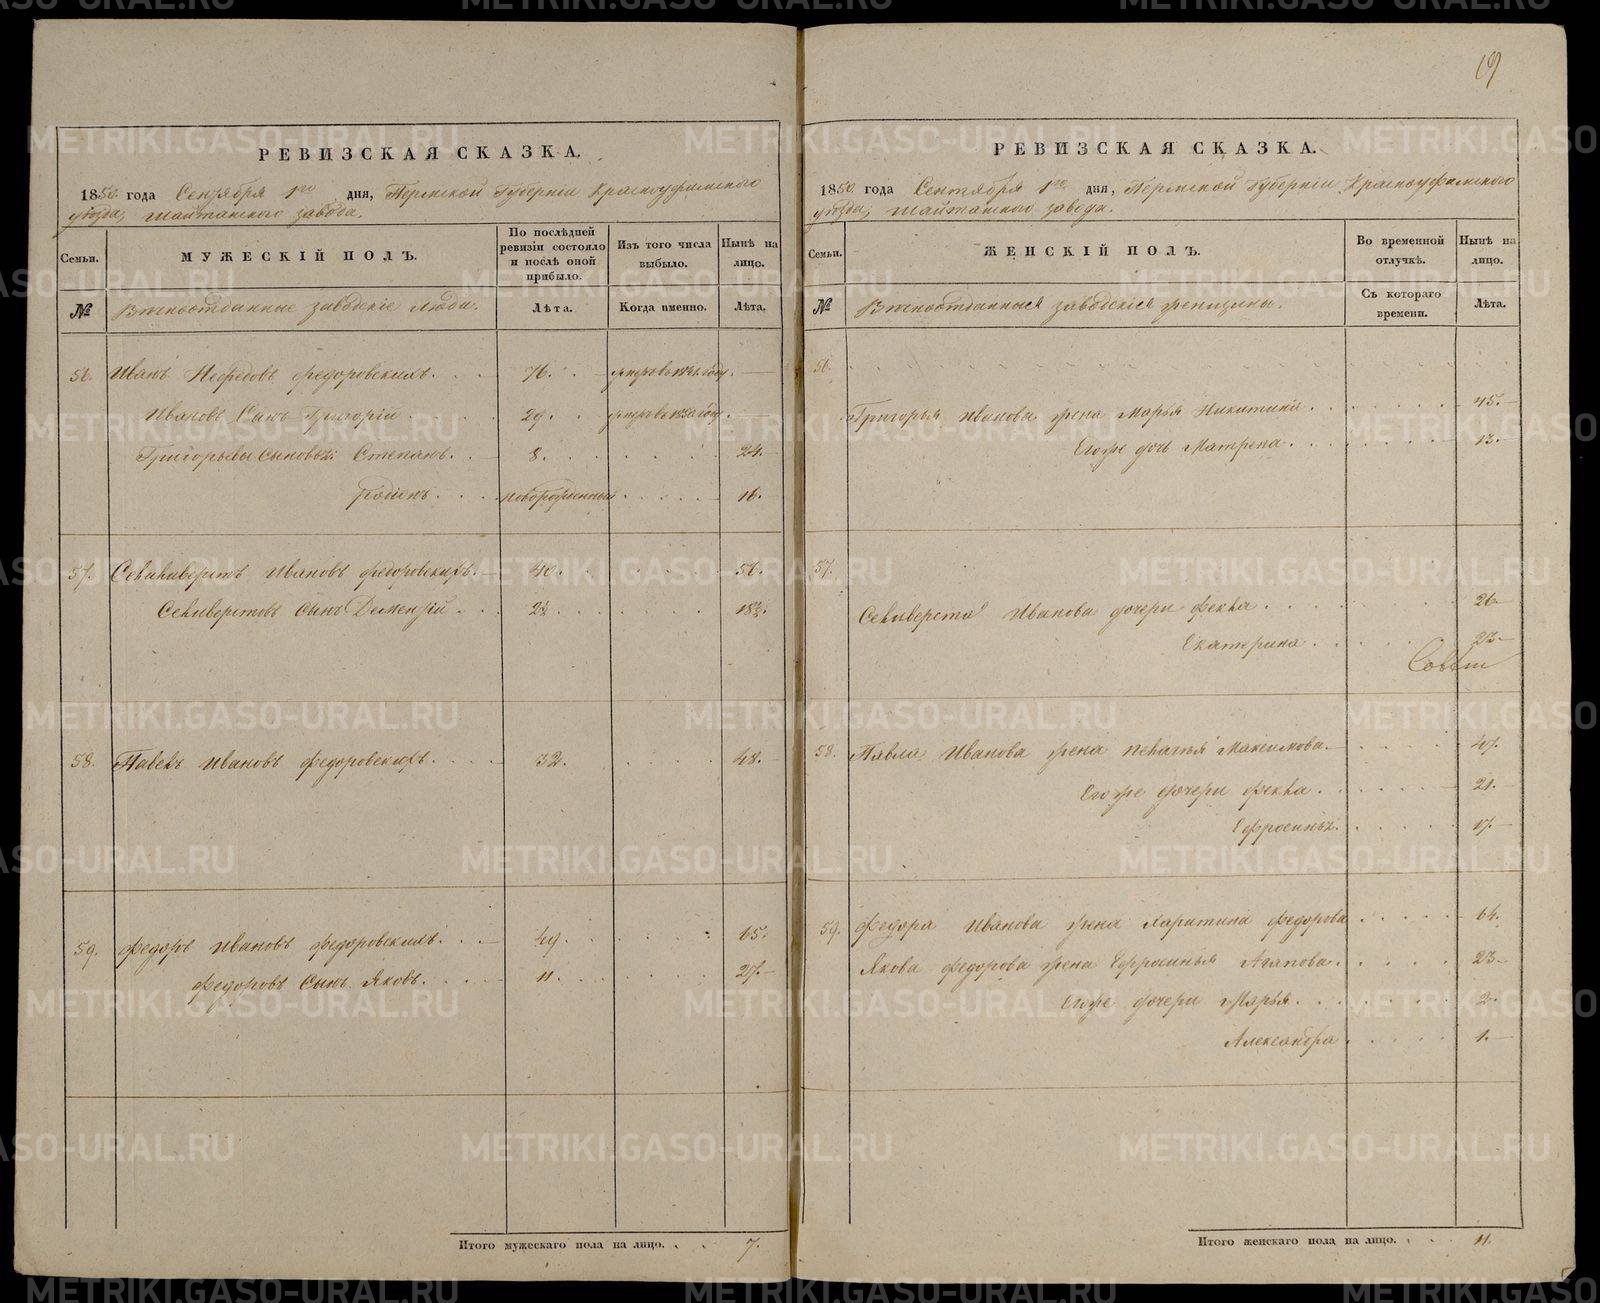 19
РЕВИЗСКАЯ СКАЗКА.
1850 года Сентября 1го дня, Пермской Губерніи Красноуфимского
уѣзда, Шайтанского завода.
Семьи.
МУЖЕСКІЙ ПОЛЪ.
По послѣдней ревизіи состояло и послѣ оной прибыло.
Изъ того числа выбыло.
Нынѣ на лицо.
№
Вѣчноотданные заводскіе люди.
Лѣта.
Когда именно.
Лѣта.
56. Иванъ Нефедовъ Федоровскихъ. 76.
Ивановъ Сынъ Григорій 29.
Григорьевы Сыновья: Степанъ. 8. 24.
Родіонъ. новорожденный 16.
57. Селиверстъ Ивановъ Федоровскихъ. 40. 56.
Селиверстов Сынъ Дементій 2½ 18½.
58. Павелъ Ивановъ Федоровскихъ. 32. 48.
59. Федоръ Ивановъ Федоровскихъ. 49. 65.
Федоровъ Сынъ Яковъ. 11. 27.
Итого мужескаго пола на лицо. 7.
РЕВИЗСКАЯ СКАЗКА.
1850 года Сентября 1го дня, Пермской Губерніи Красноуфимского
уѣзда, Шайтанского завода.
Семьи.
ЖЕНСКІЙ ПОЛЪ.
Во временной отлучкѣ.
Нынѣ на лицо.
№
Вѣчноотданныя заводскія женщины.
Съ котораго времени.
Лѣта.
56.
Григорья Иванова жена Марья Никитина 45.
Егоже дочь Матрена. 13.
57.
Селиверста Иванова дочери Фекла 26
Екатерина 23
58. Павла Иванова жена Пелагья Максимова. 47.
Егоже дочери Фекла 21.
Ефросинья. 17.
59. Федора Иванова жена Харитина Федорова 64.
Якова Федорова жена Ефросинья Агапова. 23
Егоже дочери Марья. 2.
Александра 1.
Итого женскаго пола на лицо. 11.
METRIKI.GASO-URAL.RU